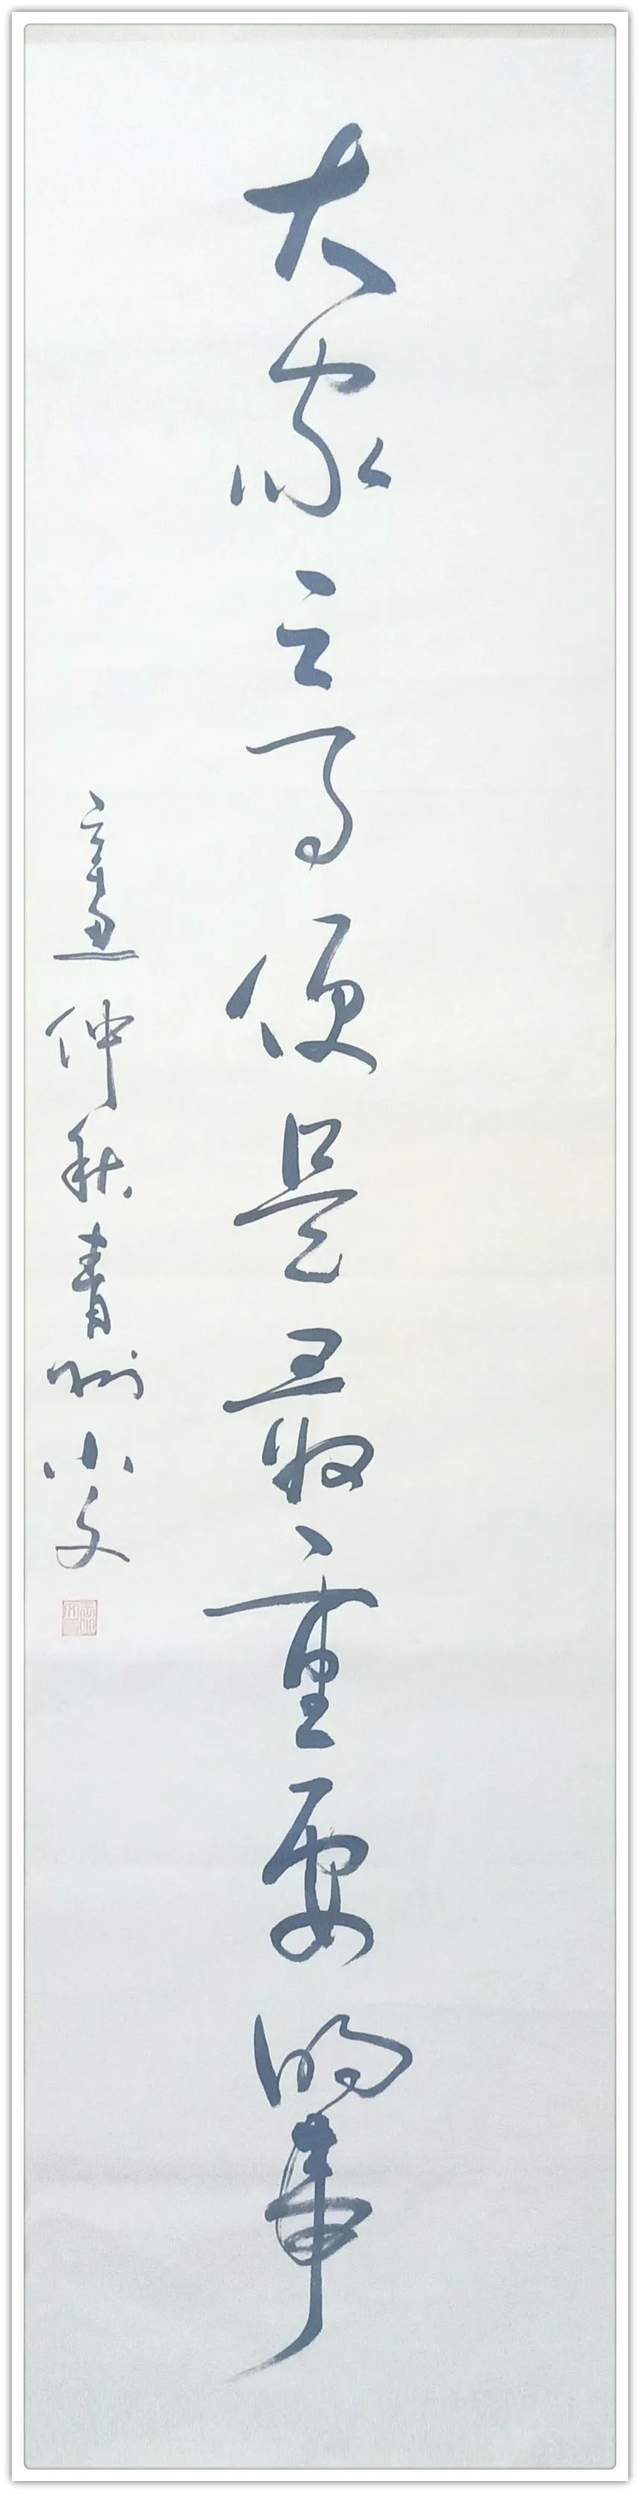 大家之事便是最重要的事
辛丑仲秋青州小文